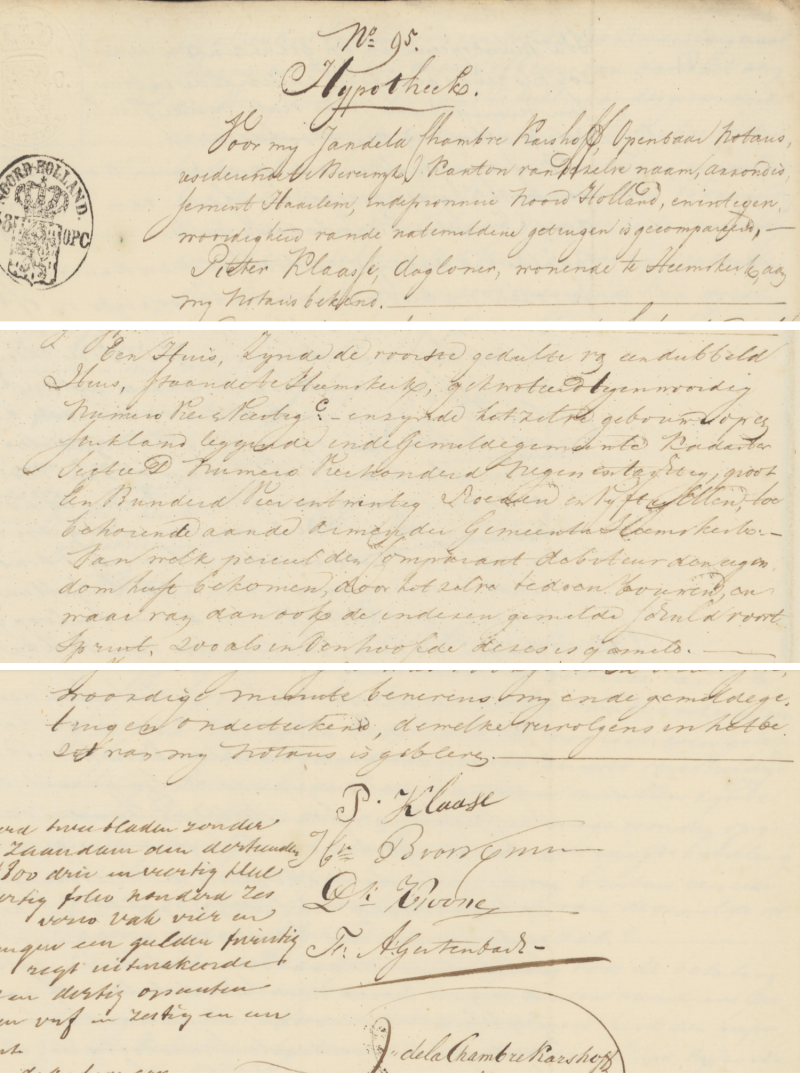 No 95.
Hypotheek.
Voor my Jan de la Chambre Karshoff, Openbaar Notaris,
resideerende te Beverwyk, Kanton van dezelve naam, arrondis,
sement Haarlem, in de provincie Noord Holland, en in tegen,
woordigheid van de natemeldene getuigen is gecompareerd, —
Pieter Klaasse, dagloner, wonende te Heemskerk, aan
my Notaris bekend.
NOORD-HOLLAND.
OPC
Een Huis, zynde de voorste gedeelte van een dubbeld
Huis, staande te Heemskerk, gequoteerd tegenwoordig
Numero Vier en Veertig c. — en zynde hetzelve gebouwd op een
stuk land leggende in de Gemelde gemeente Kadaster
Sectie D Numero Vierhonderd Negen en tachtig, groot
Een Bunderd Vier en twintig Roeden en vyftig Ellen, toe
behorende aan de armen der Gemeente Heemskerk. —
Van welk perceel den Comparant debiteur den eigen
dom heeft bekomen, door het zelve te doen bouwen, en
waar van dan ook de in dezen gemelde schuld voort
spruit, zoo als in den hoofde dezes is gemeld. —
woordige minute benevens my en de gemelde ge,
tuigen onderteekend, dewelke vervolgens in het be,
zit van my Notaris is gebleven.
P. Klaase
Dk Kroone
Fr. A. Gertenbach
twee bladen zonder
Zaandam den derhenden
1800 drie en veertig deel
folio honderd zes
verso vak vier en
een gulden twintig
regt uitmakende
en dertig opcenten
vyf en zestig en een
de la Chambre Karshoff